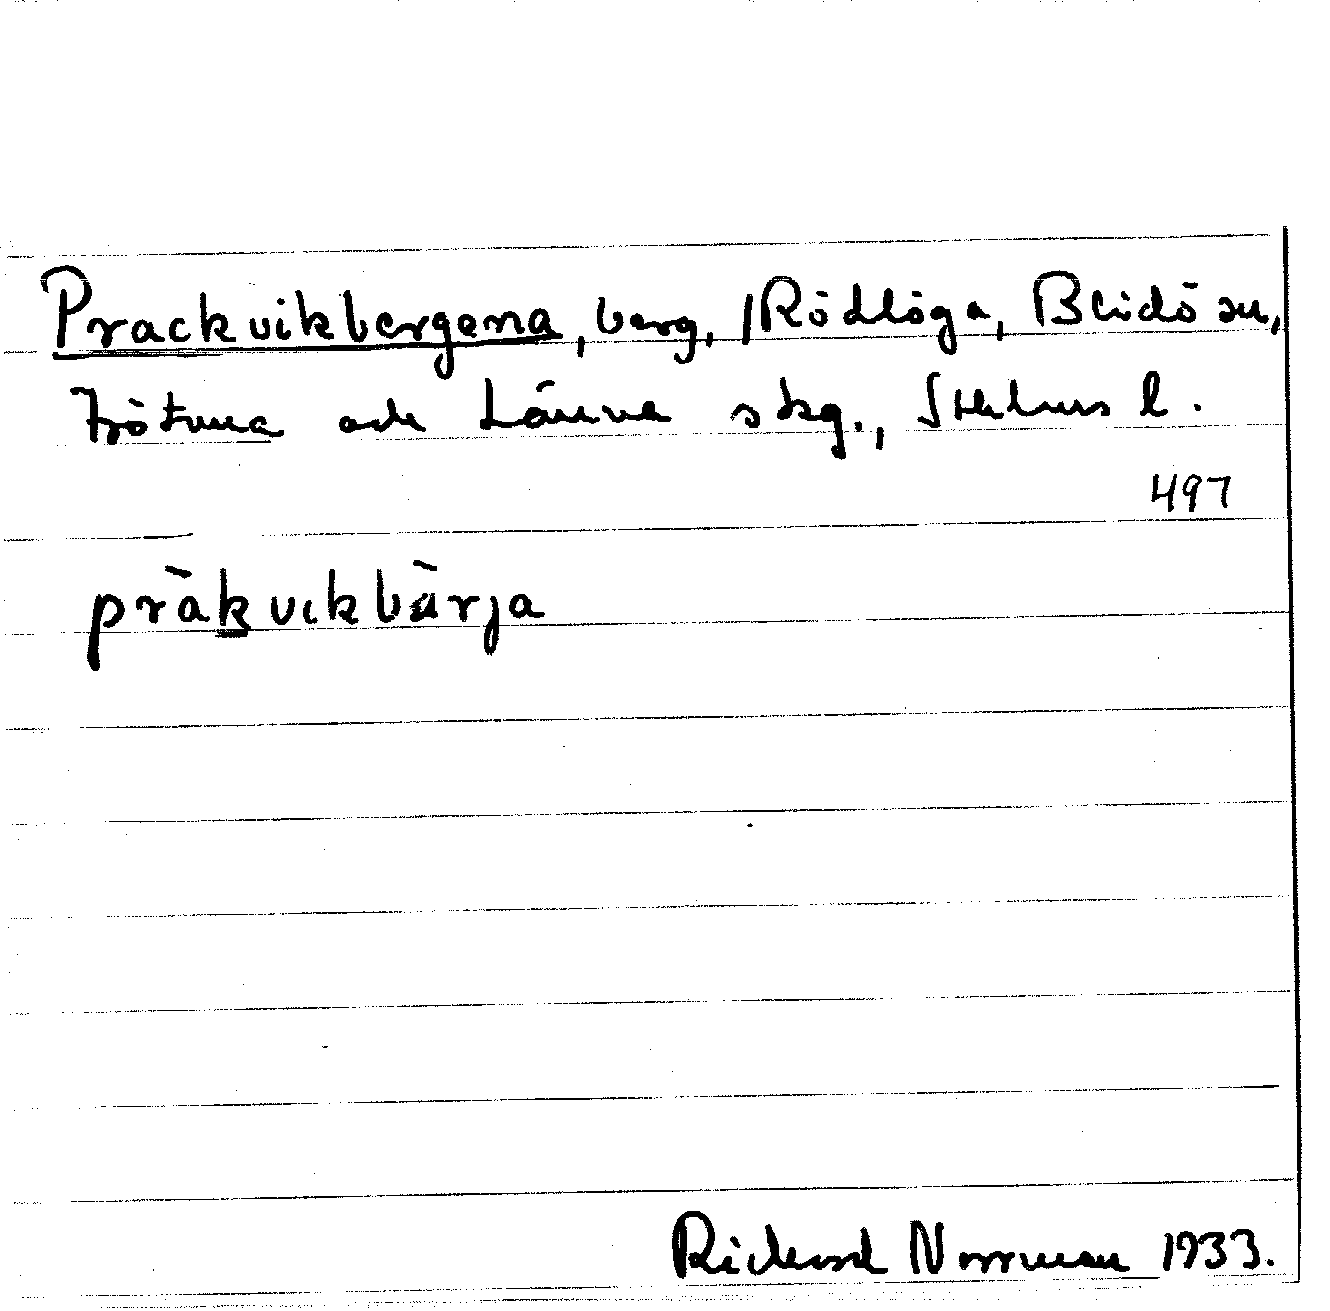 Prackvikbergena, berg, /Rödlöga, Blidö sn,
Frötuna och Länna skg., Sthlms l.
497
präkvikbärja
Rickard Norrman 1933.